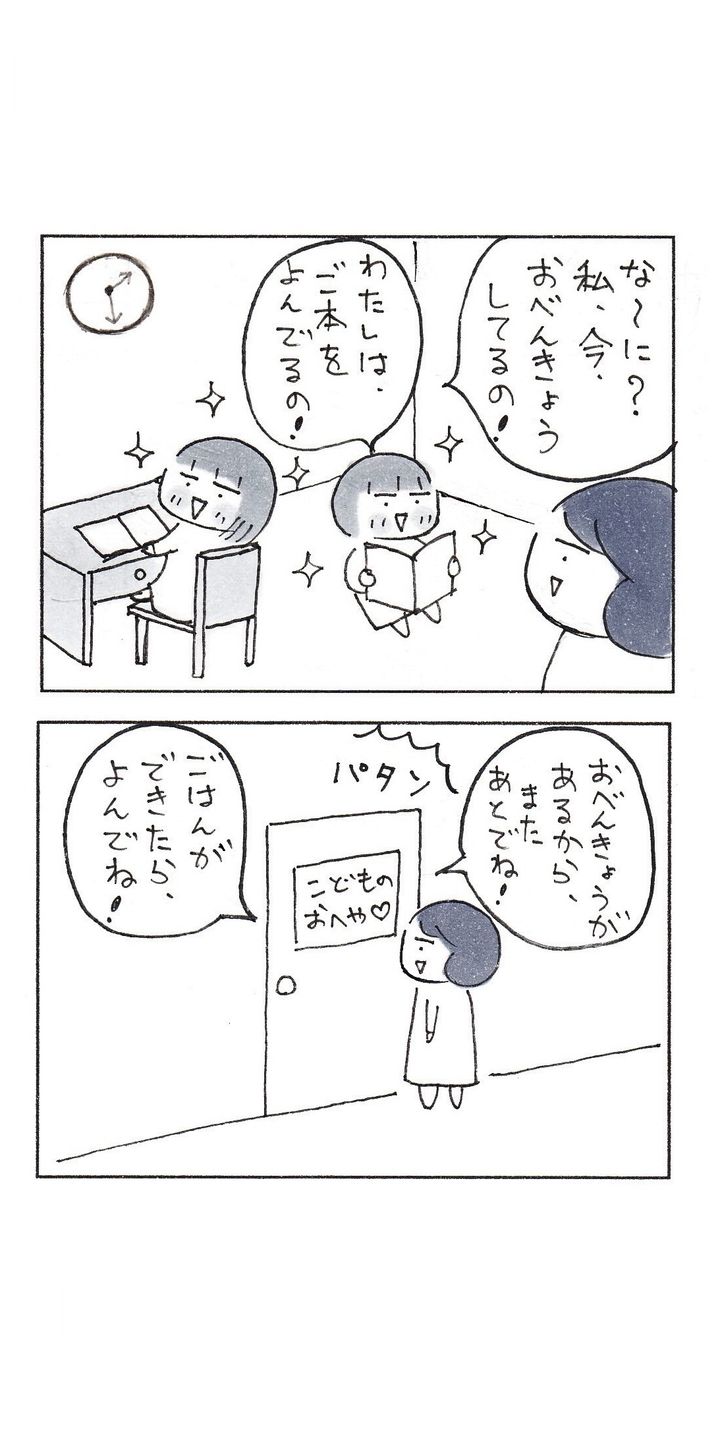 な〜に?
私、今、
おべんきょう
してるの!
わたしは、
ご本を
よんでるの!
おべんきょうが
あるから、
また
あとでね!
パタン
こどもの
おへや♡
ごはんが
できたら、
よんでね!